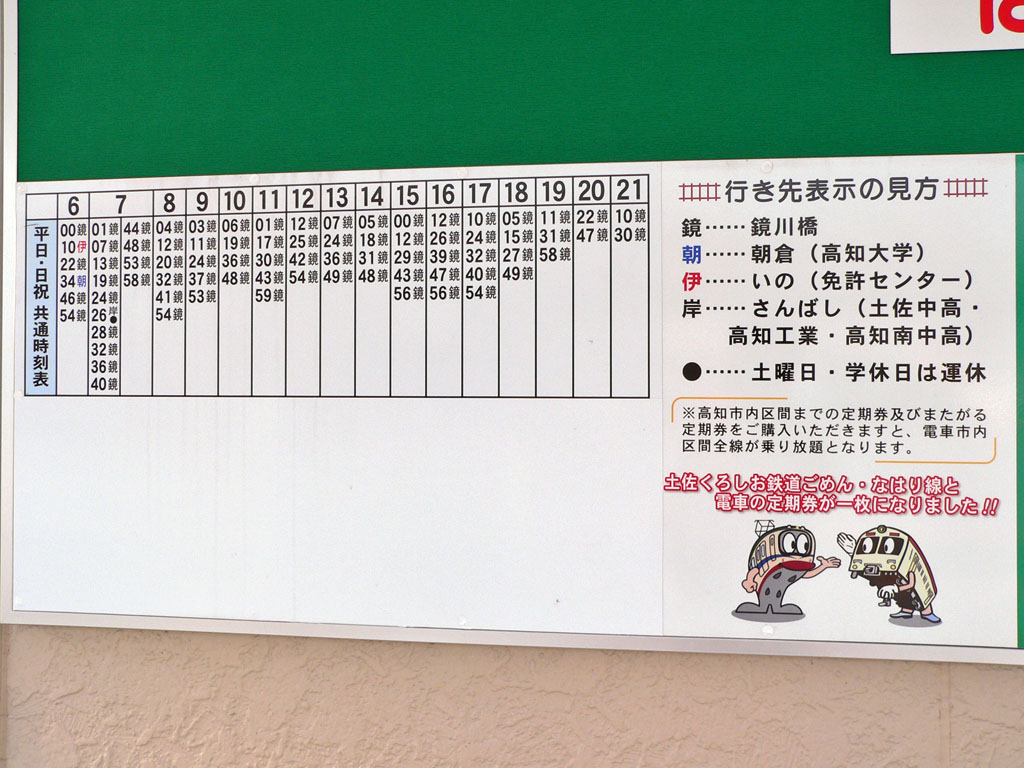 6 7 8 9 10 11 12 13 14 15 16 17 18 19 20 21
平日・日祝 共通時刻表
00鏡 01鏡 44鏡 04鏡 03鏡 06鏡 01鏡 12鏡 07鏡 05鏡 00鏡 12鏡 10鏡 05鏡 11鏡 22鏡 10鏡
10伊 07鏡 48鏡 12鏡 11鏡 19鏡 17鏡 25鏡 24鏡 18鏡 12鏡 26鏡 24鏡 15鏡 31鏡 47鏡 30鏡
22鏡 13鏡 53鏡 20鏡 24鏡 36鏡 30鏡 42鏡 36鏡 31鏡 29鏡 39鏡 32鏡 27鏡 58鏡
34朝 19鏡 58鏡 32鏡 37鏡 48鏡 43鏡 54鏡 49鏡 48鏡 43鏡 47鏡 40鏡 49鏡
46鏡 24鏡 41鏡 53鏡 59鏡 56鏡 56鏡 54鏡
54鏡 26岸● 54鏡
28鏡
32鏡
36鏡
40鏡
行き先表示の見方
鏡……鏡川橋
朝……朝倉（高知大学）
伊……いの（免許センター）
岸……さんばし（土佐中高・
高知工業・高知南中高）
●……土曜日・学休日は運休
※高知市内区間までの定期券及びまたがる
定期券をご購入いただきますと、電車市内
区間全線が乗り放題となります。
土佐くろしお鉄道ごめん・なはり線と
電車の定期券が一枚になりました!!